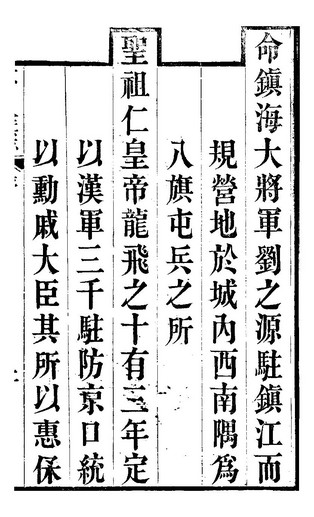 命鎮海大將軍劉之源駐鎮江而
規營地於城內西南隅爲
八旗屯兵之所
聖祖仁皇帝龍飛之十有三年定
以漢軍三千駐防京口統
以勳戚大臣其所以惠保